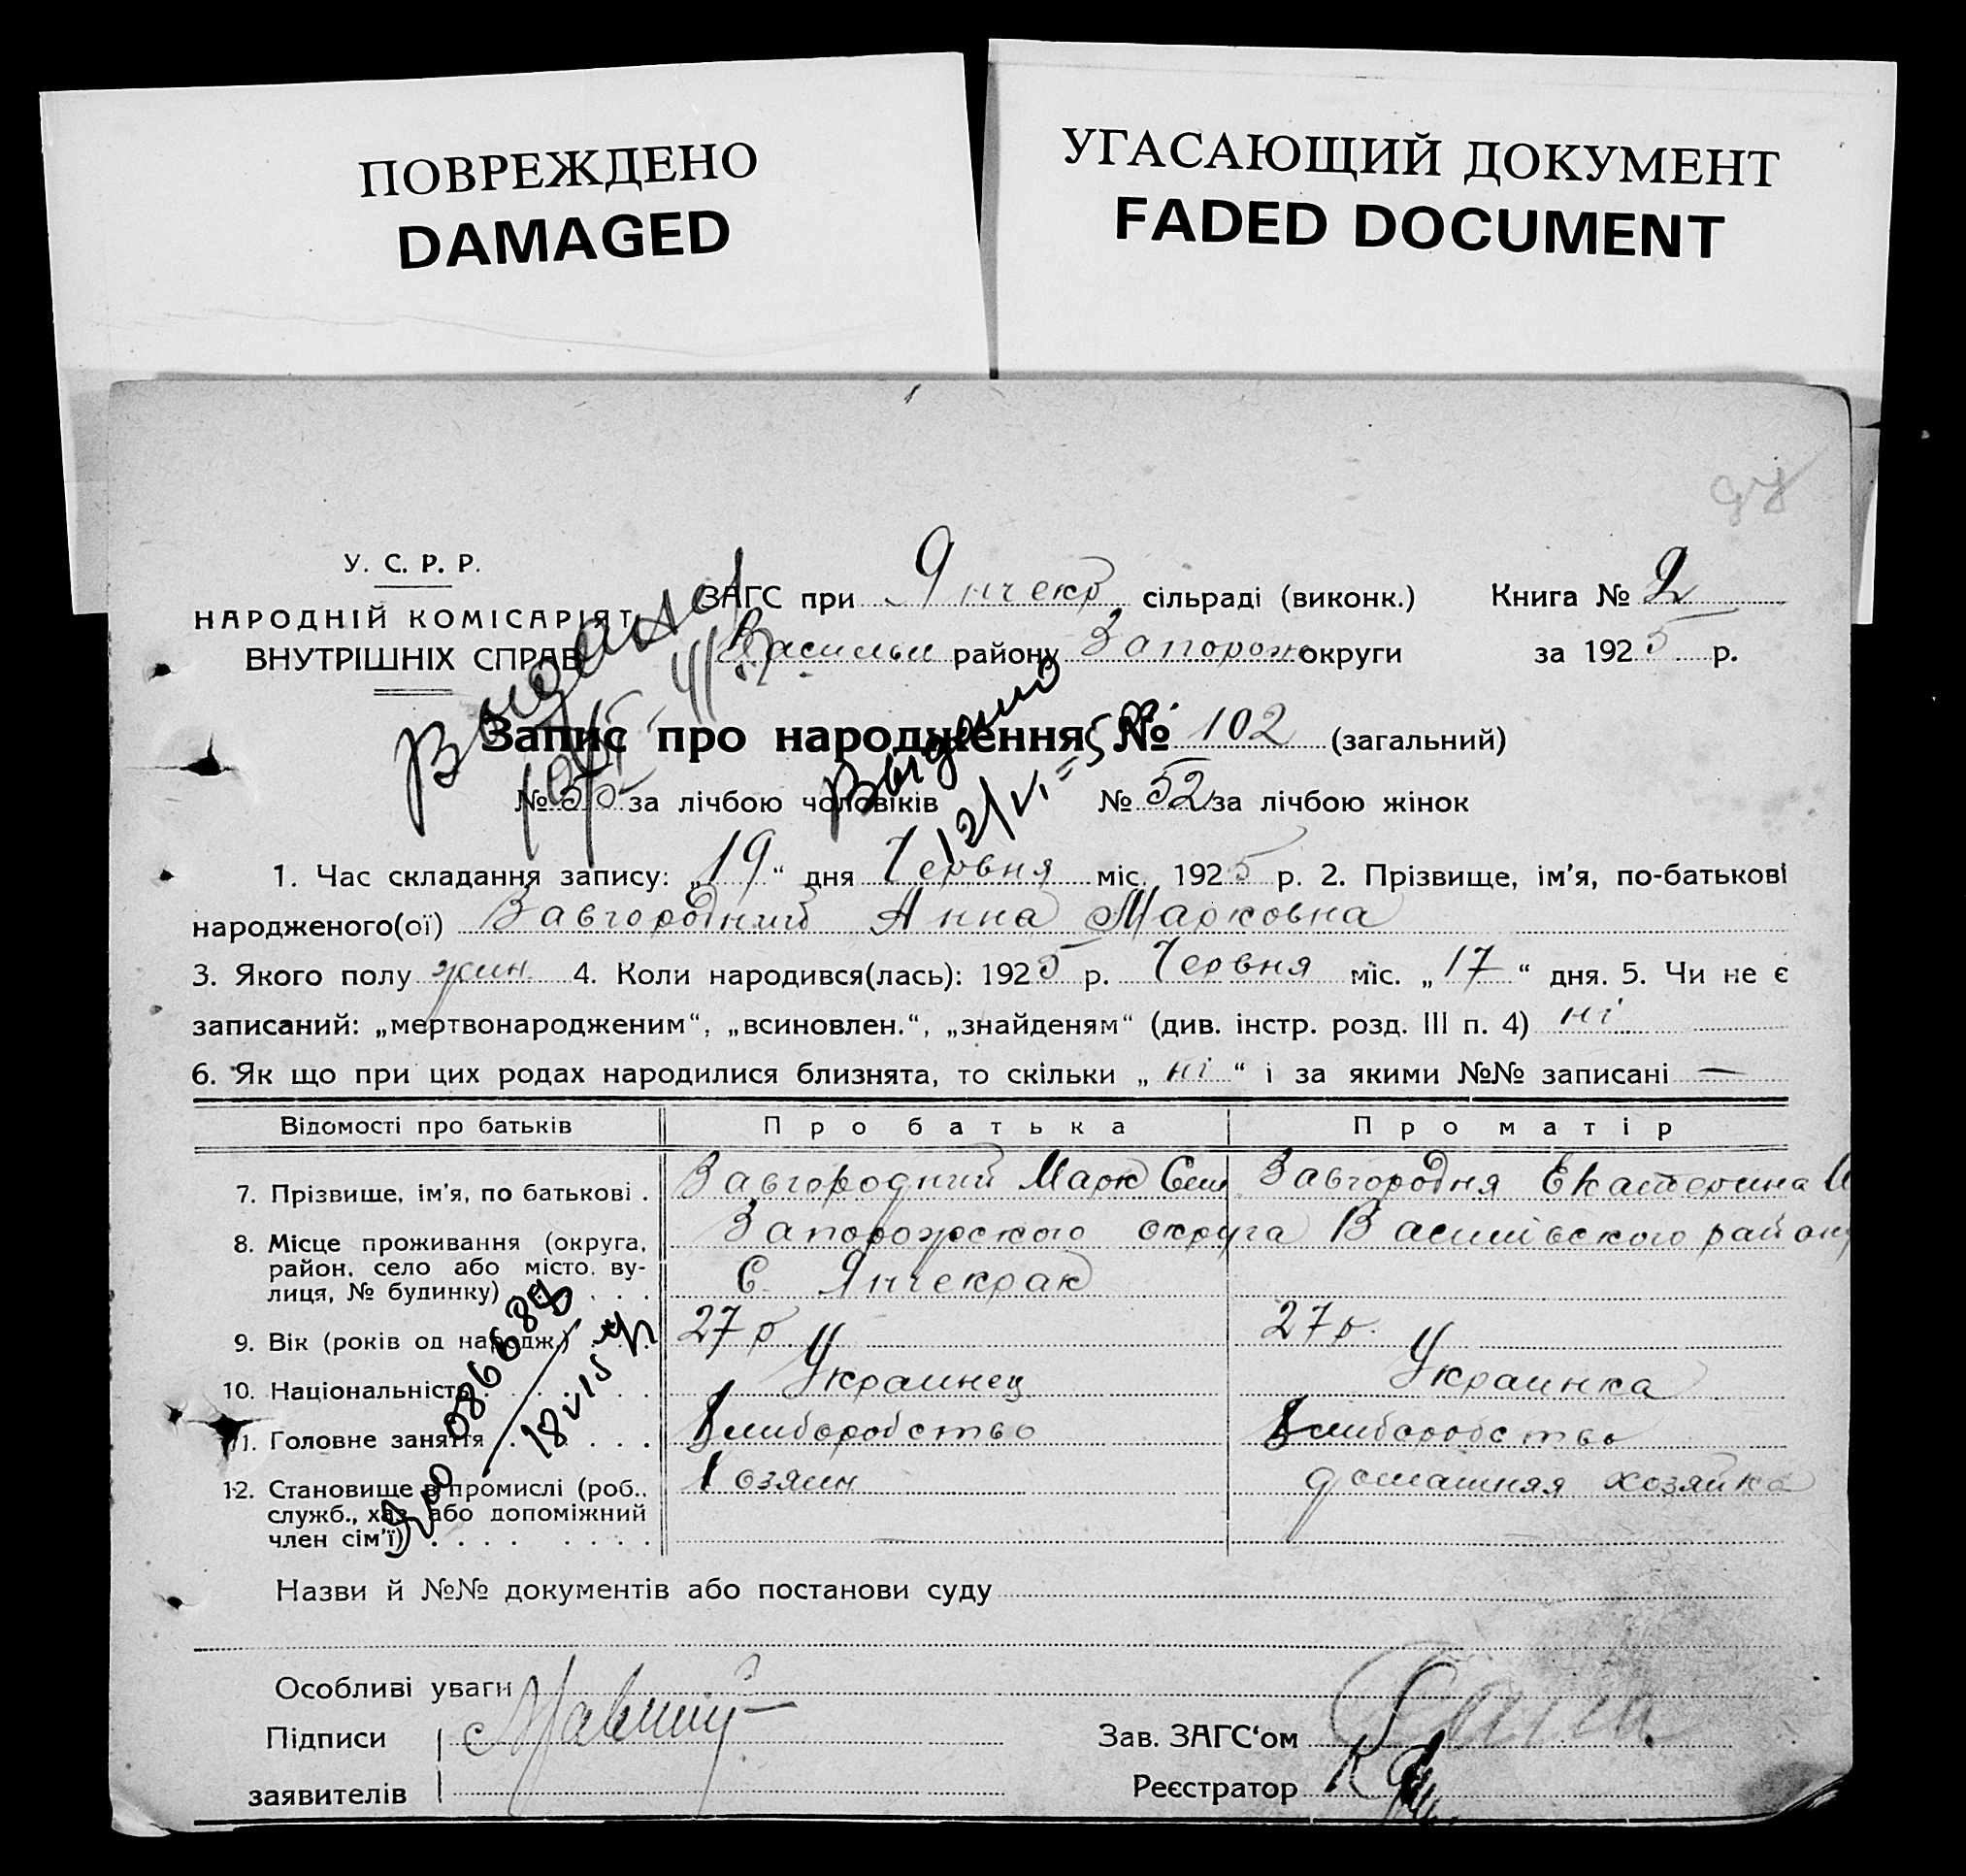 ПОВРЕЖДЕНО
DAMAGED
УГАСАЮЩИЙ ДОКУМЕНТ
FADED DOCUMENT
У. С. Р. Р.
НАРОДНІЙ КОМІСАРІЯТ
ВНУТРІШНІХ СПРАВ
ЗАГС при Янчекр сільраді (виконк.)
Васильи району Запорож округи
Книга № 2
за 1925 р.
Выдано
Запис про народження № 102 (загальний)
Выдано
№ 50 за лічбою чоловіків № 52 за лічбою жінок
12/VI-
1. Час складання запису: „19“ дня Червня міс. 1925 р. 2. Прізвище, ім’я, по-батькові
народженого(ої) Завгородний Анна Марковна
3. Якого полу жин 4. Коли народився(лась): 1925 р. Червня міс. „17“ дня. 5. Чи не є
записаний: „мертвонародженим“, „всиновлен.“, „знайденям“ (див. інстр. розд. III п. 4) ні
6. Як що при цих родах народилися близнята, то скільки „ні“ і за якими №№ записані —
Відомості про батьків Про батька Про матір
7. Прізвище, ім’я, по батькові . Завгородний Марк Сем Завгородня Екатерина И
8. Місце проживання (округа, Запорожского округа Василівского району
район, село або місто, ву-
лиця, № будинку) . . . С. Янчекрак
9. Вік (років од народж.) . . . 27 р 27 р.
10. Національність . . . . . Украинец Украинка
11. Головне заняття . . . . . Хлиборобство Хлиборобство
12. Становище в промислі (роб., Хозяин домашняя хозяйка
служб., хаз. або допоміжний
член сім’ї) . . . . . . . .
Назви й №№ документів або постанови суду
Особливі уваги
Підписи
заявителів
Зав. ЗАГС‘ом
Реєстратор